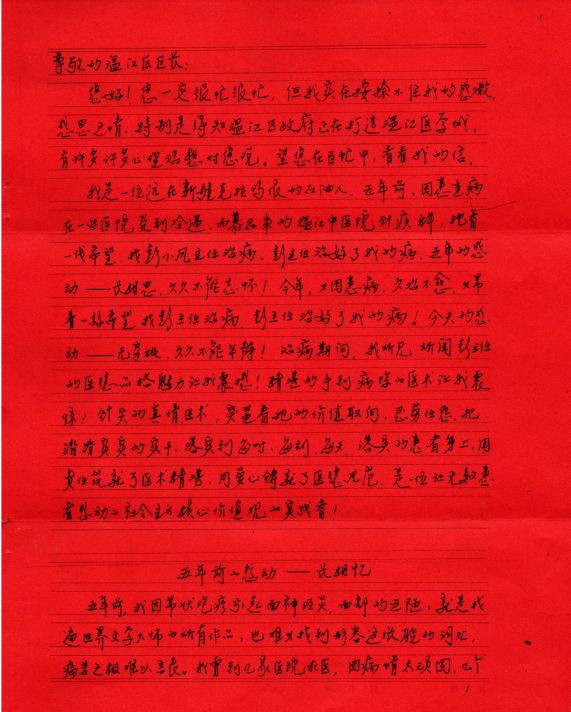 尊敬的温江区区长:
您好!您一定很忙很忙,但我实在按捺不住我的感激,
感恩之情,特别是得知温江区政府正在打造温江医学城,
有许多许多心里话想对您说。望您在百忙中,看看我的信。
我是一位远在新疆克拉玛依的石油人,五年前,因患重病
在一些医院受到冷遇,而慕名来的温江中医院针疗科,抱着
一线希望,找彭小凤主任治病,彭主任治好了我的病,五年的感
动——长相思,久久不能忘怀!今年,又因患病,久治不愈,又带
着一线希望找彭主任治病,彭主任治好了我的病!今天的感
动——无穷极,久久不能平静!治病期间,我所见所闻彭主任
的医德品格魅力让我震撼!精湛的手到病除的医术让我震
惊!针灸的真情医术,实量着她的价值取向,忍劳任怨,把
踏踏实实的实干,落实到每时、每刻、每天,落实的患者身上,用
责任筑就了医术精湛,用爱心铸就了医德风范,是一位让无数患
者感动的社会主义核心价值观的实践者!
五年前的感动——长相忆
五年前,我因带状疱疹引起面神经炎,面部的丑陋,就是找
遍世界文学大师的所有作品,也难以找到形容这张脸的词汇,
病苦之极难以言表。我曾到几家医院求医,因病情太顽固,几个
1